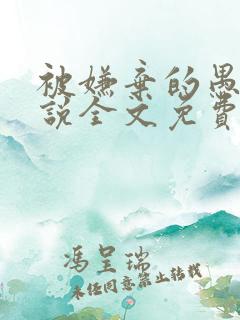 被嫌弃的愚
説全文免費
馮呈瑞
未任同意禁止转载